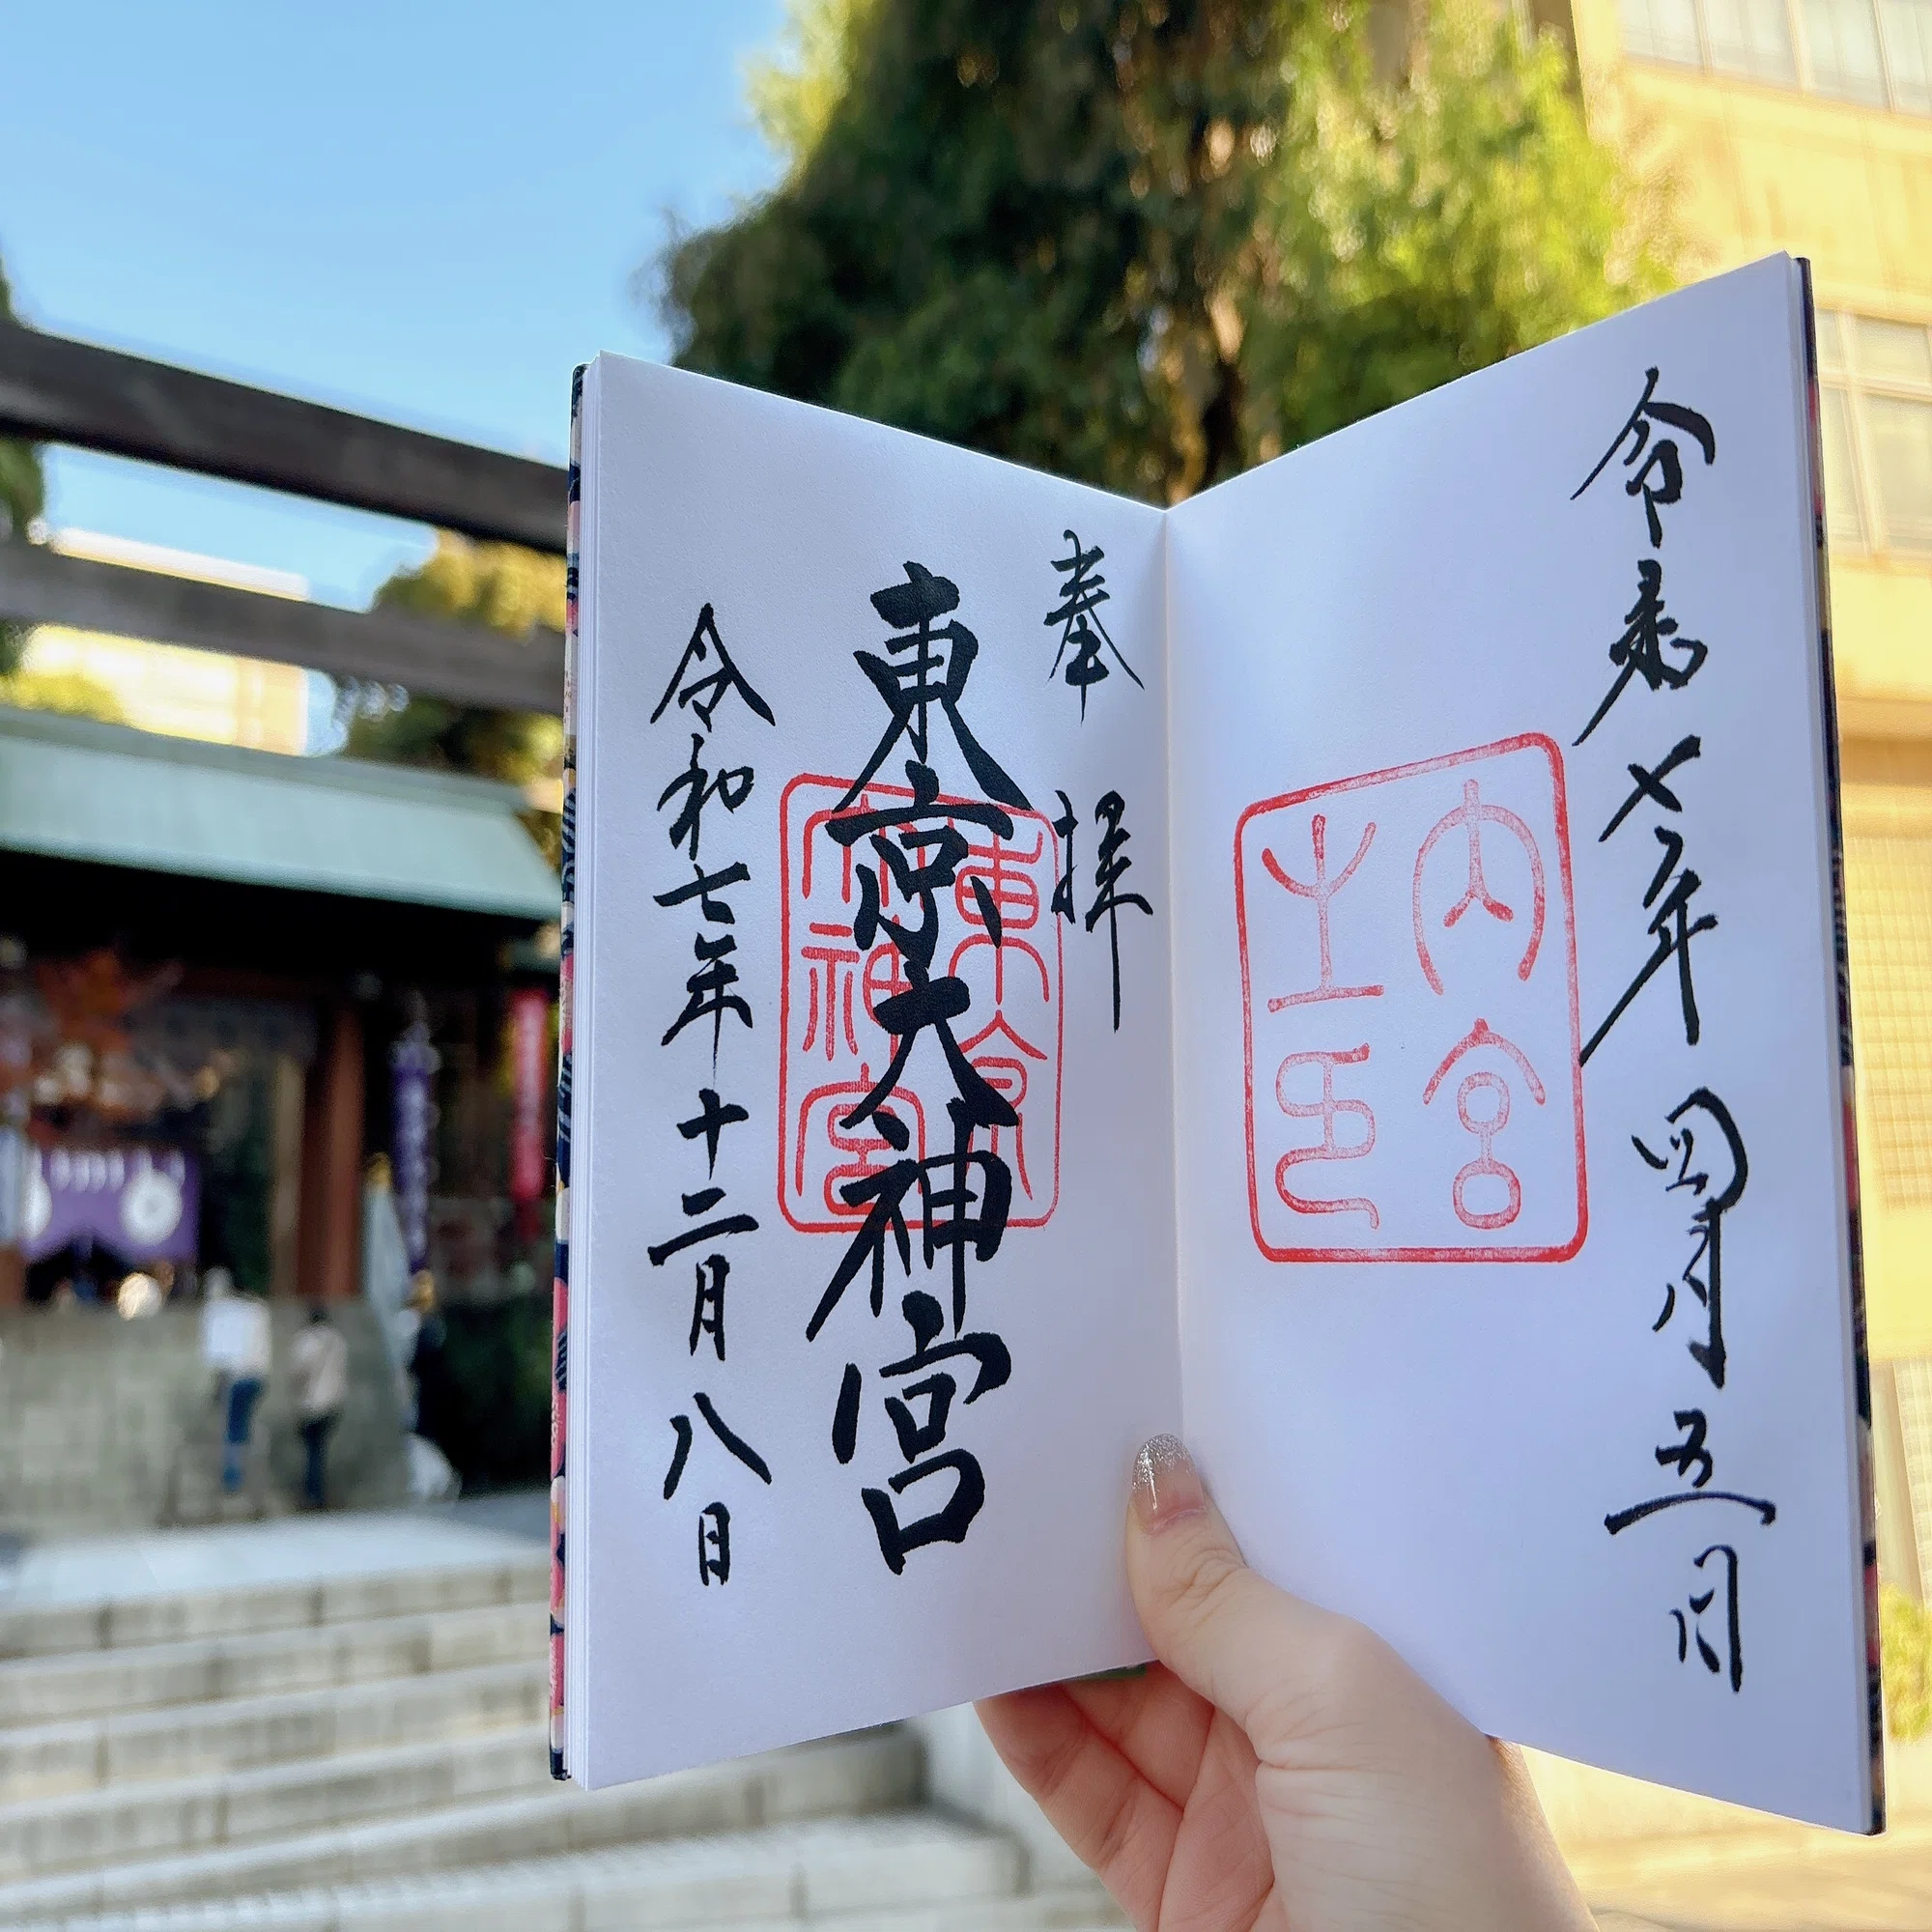 令和七年四月五日
内宮
之印
奉拝
東京大神宮
東京
大神宮
令和七年十二月八日